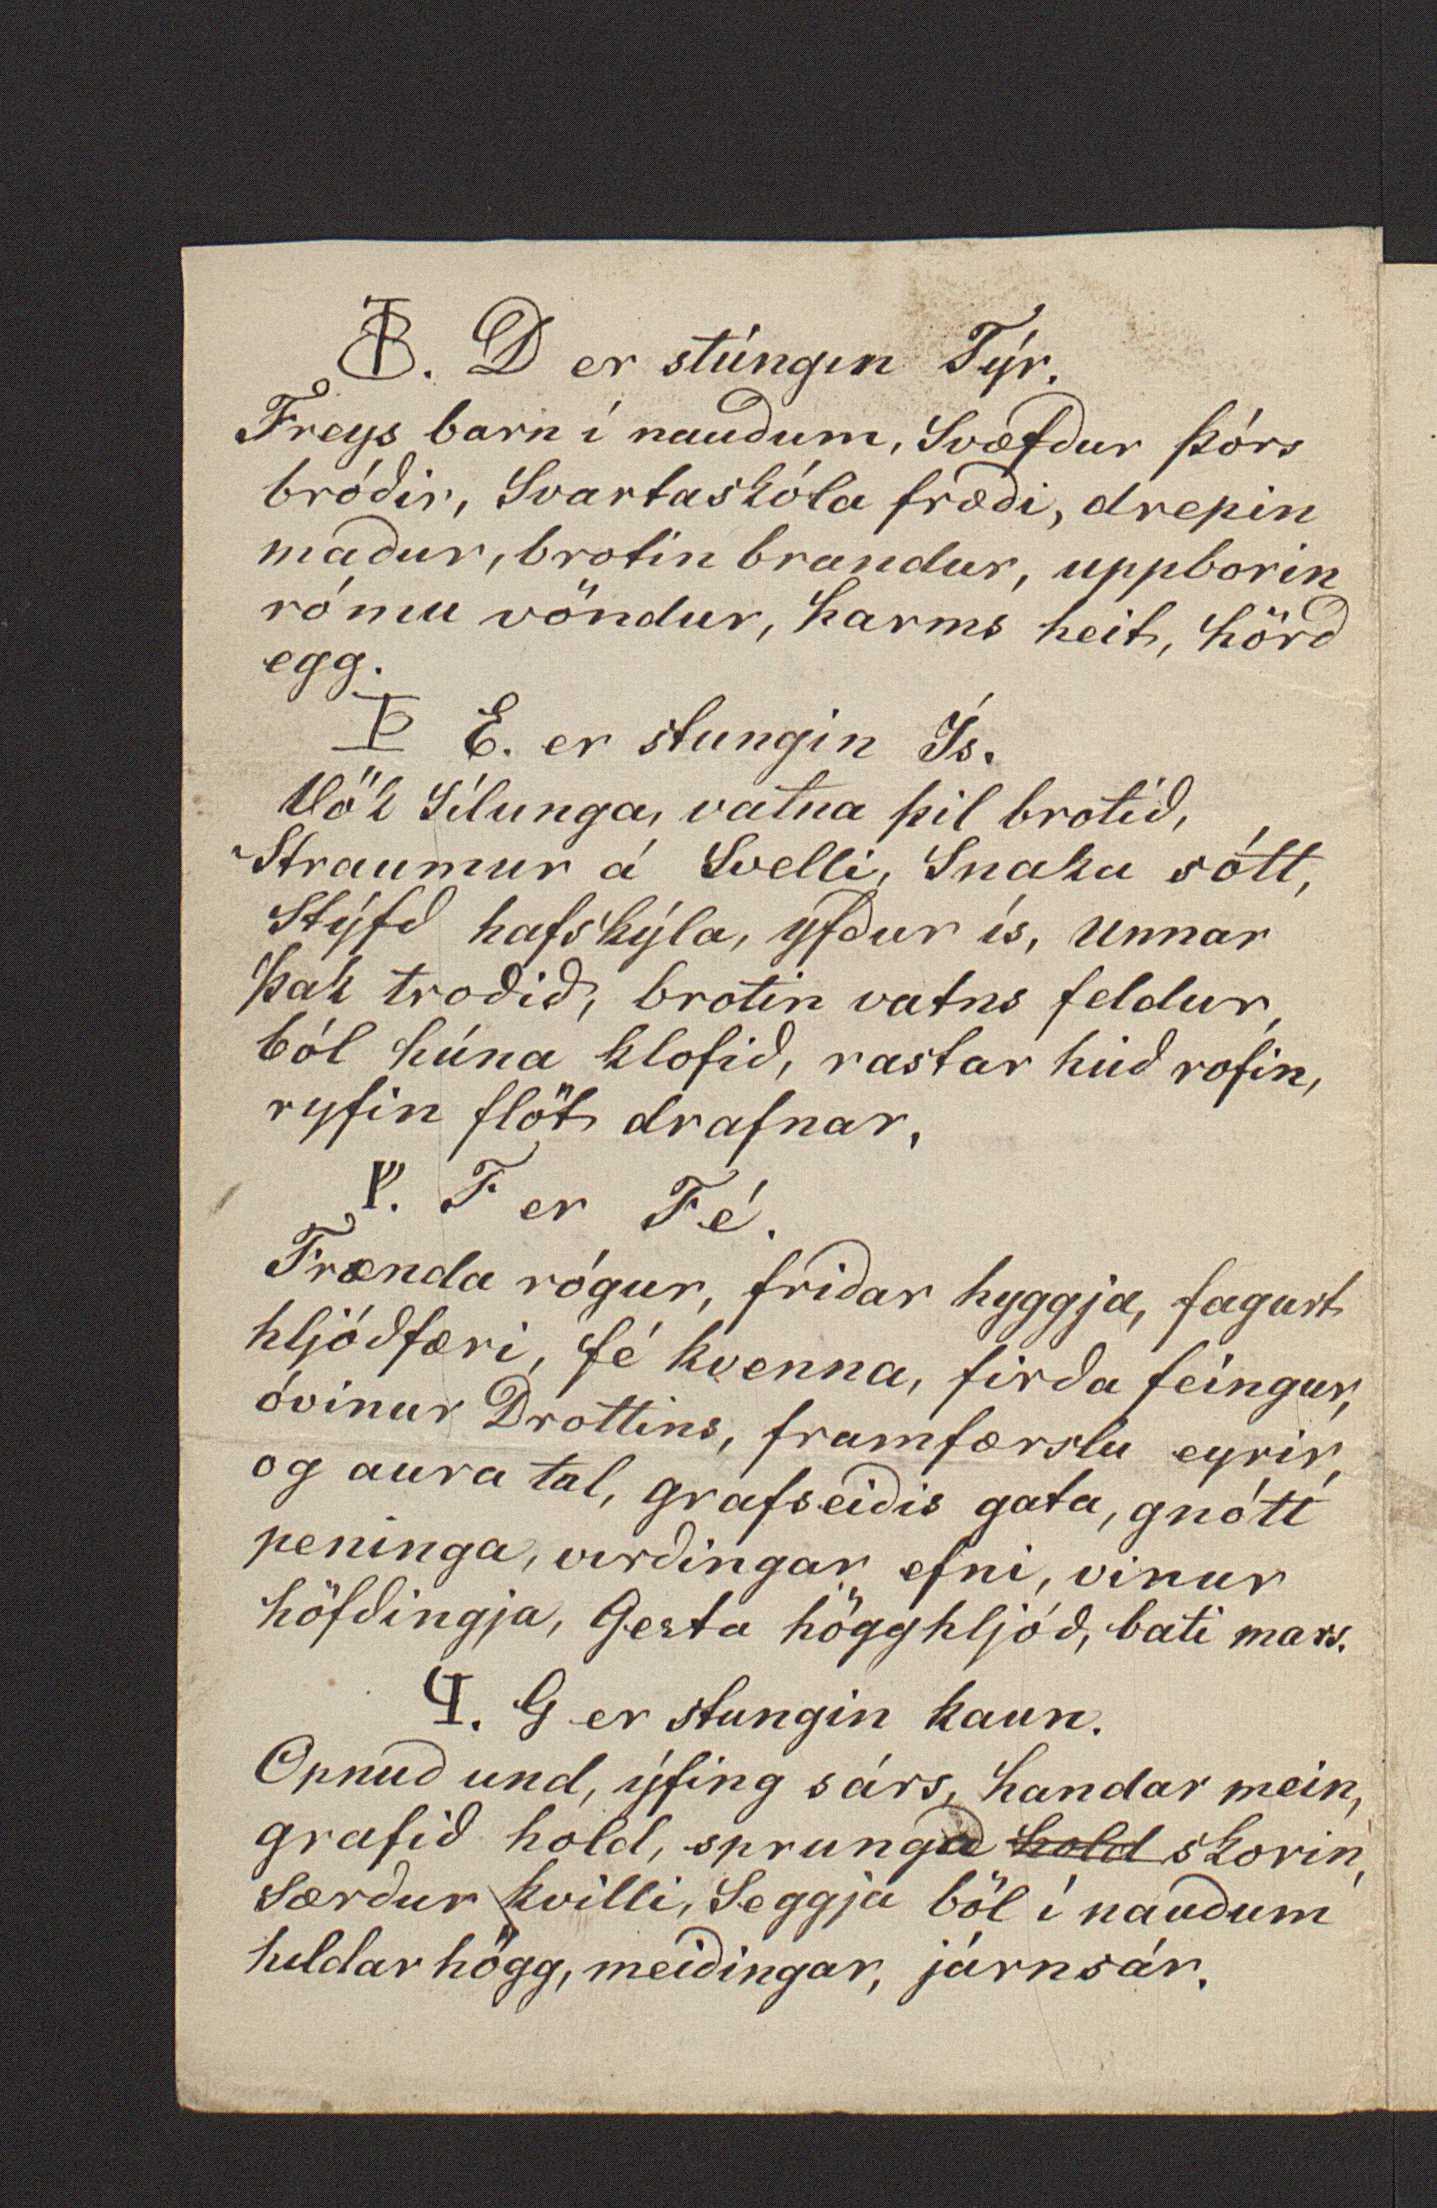 D er stúngin Týr.
Freys barn í nauðum, Svæfður Þórs
bróðir, Svartaskóla fræði, drepin
maður, brotin brandur, uppborin
rómu vöndur, harms heit, hörð
egg.
E. er stungin Ýs.
Vök Sílunga, vatna þil brotið,
Straumur á Svelli, Snaka sótt,
Stýfð hafskýla, ýfður ís, Unnar
Þak troðið, brotin vatns feldur,
ból húna klofið, rastar húð rofin,
ryfin flöt drafnar.
ᚠ. F er Fé.
Frænda rógur, friðar hyggja, fagurt
hljóðfæri, fé kvenna, firða feingur,
óvinur Drottins, framfærslu eyrir,
og aura tal, grafseiðis gata, gnótt
peninga, virðingar efni, vinur
höfðingja, Gesta högghljóð, bati mars.
G er stungin kaun.
Opnuð und, ýfing sárs, handar mein,
grafið hold, sprunga hold skorin,
Særður kvilli, Seggja böl í nauðum
huldar högg, meiðingar, járnsár.